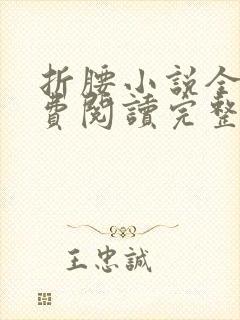 折腰小説全
費閱讀完整
王忠誠